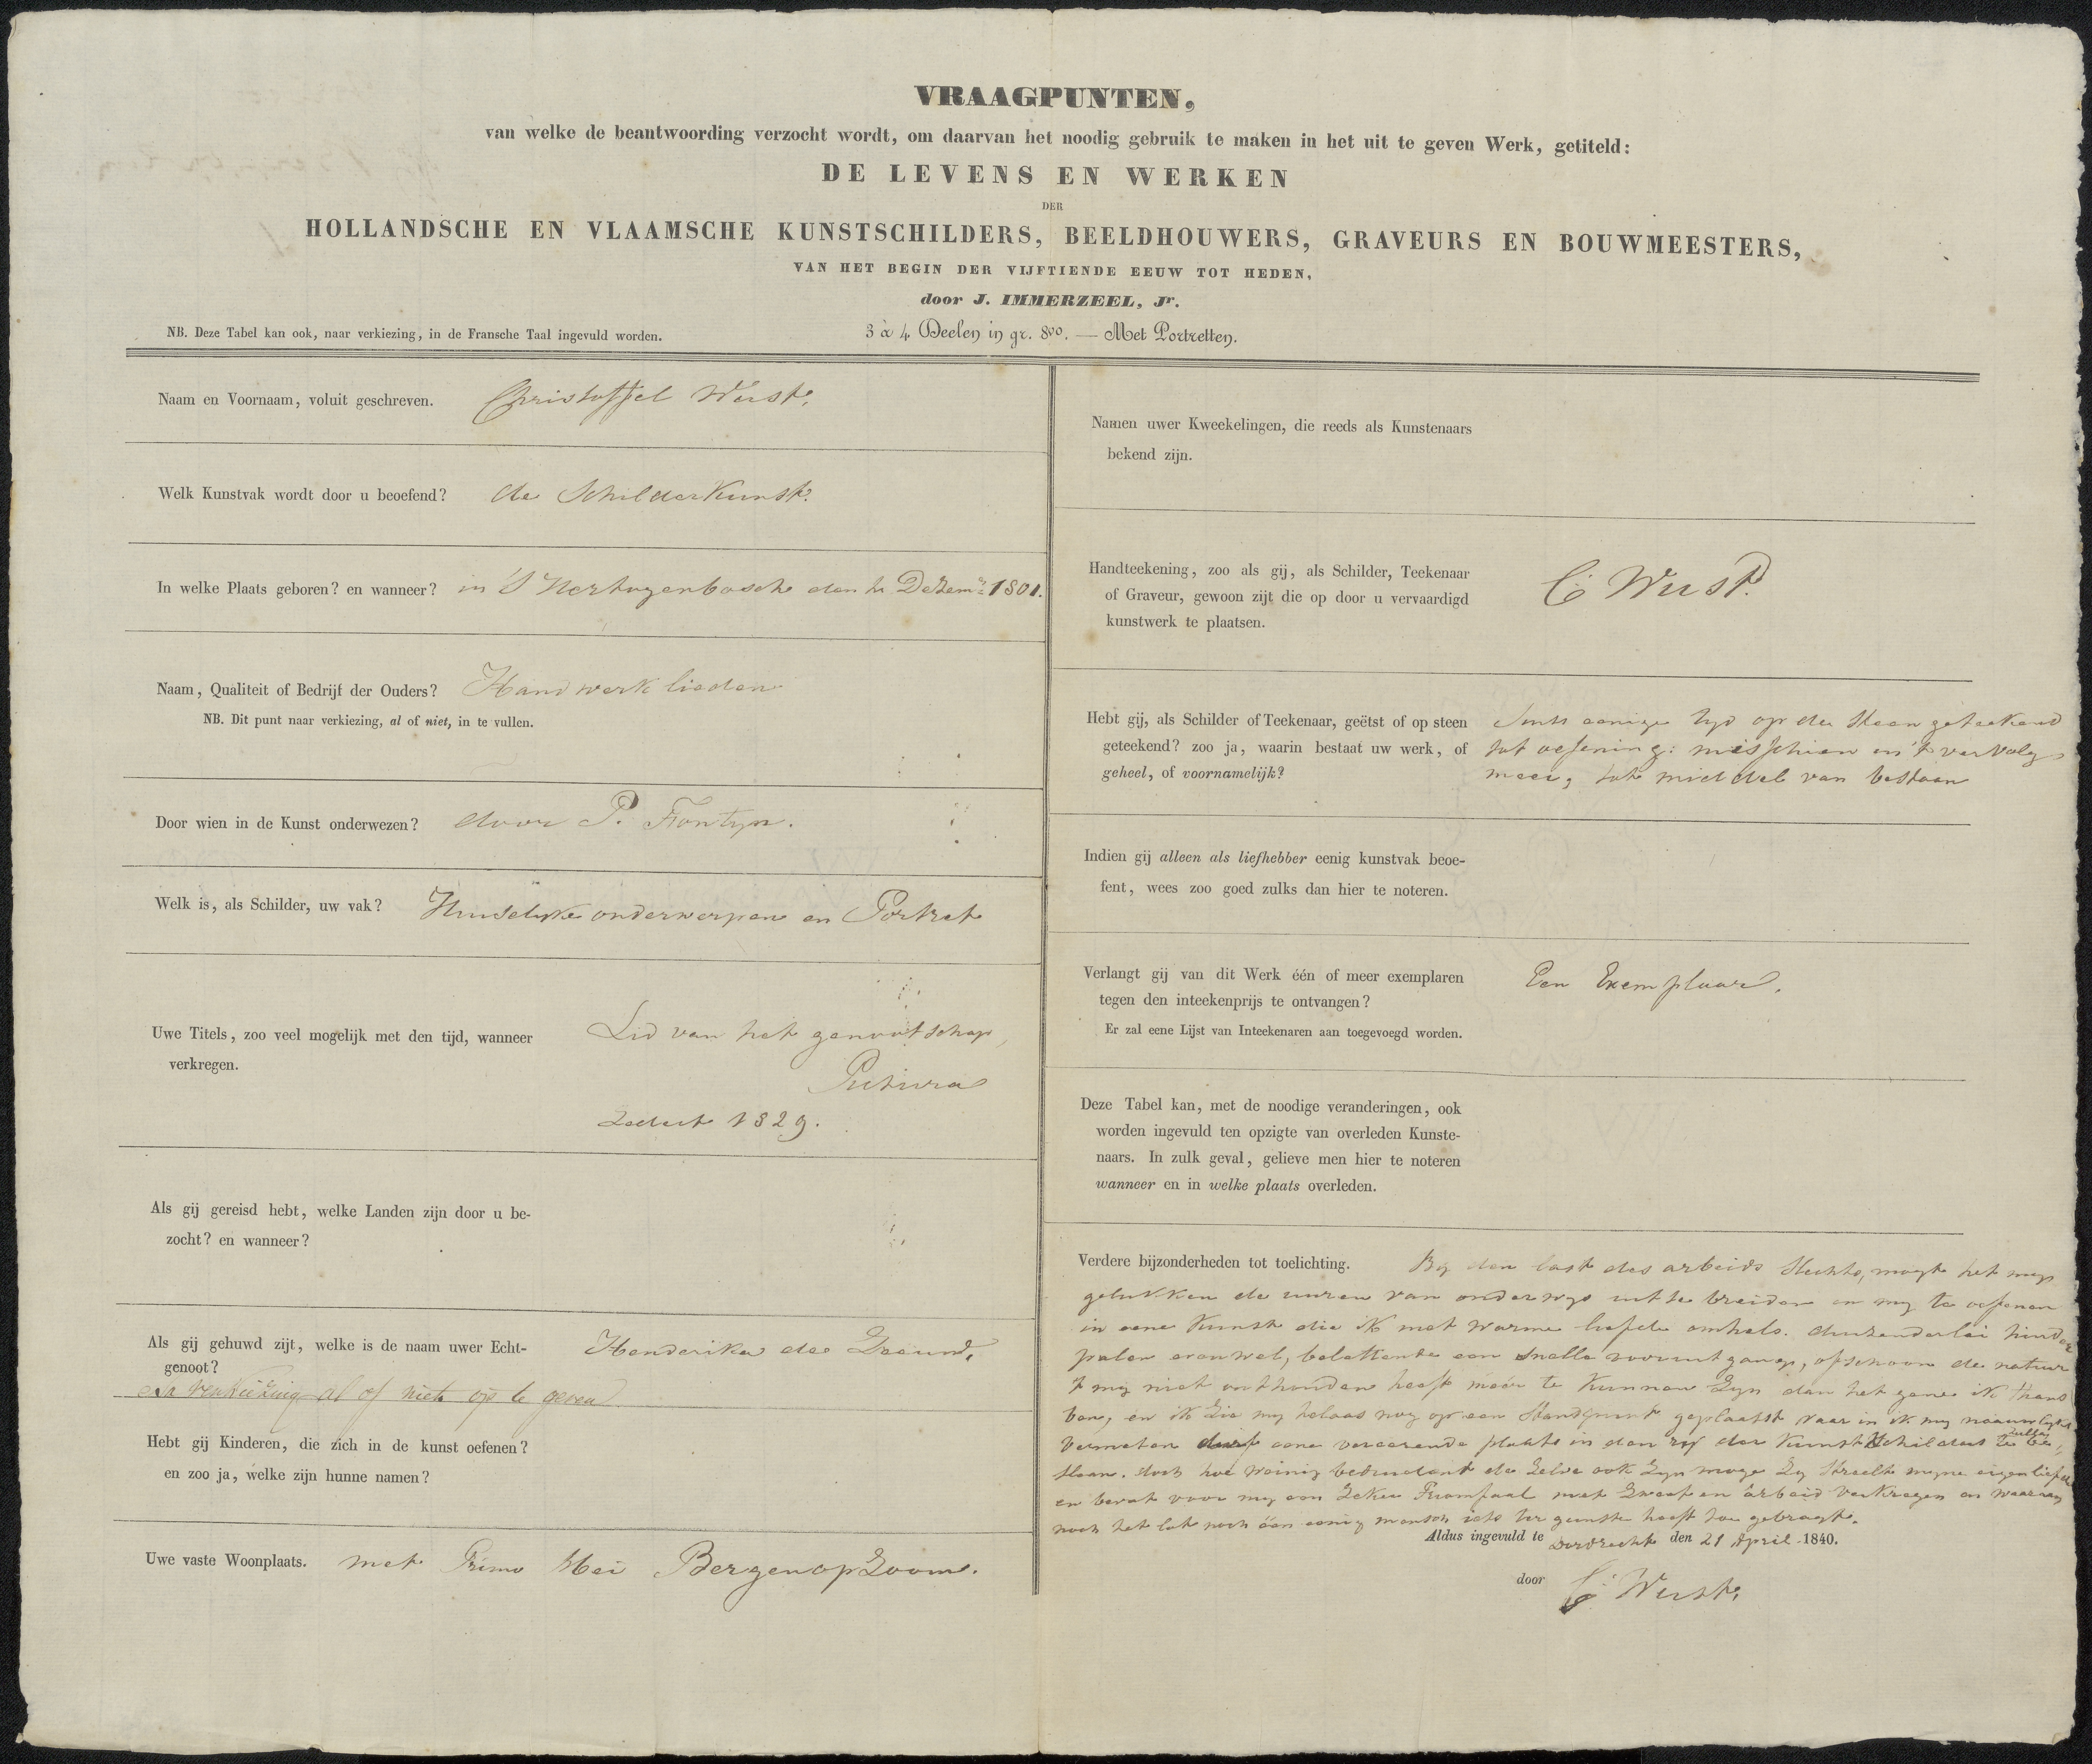 VRAAGPUNTEN,
van welke de beantwoording verzocht wordt, om daarvan het noodig gebruik te maken in het uit te geven Werk, getiteld:
DE LEVENS EN WERKEN
DER
HOLLANDSCHE EN VLAAMSCHE KUNSTSCHILDERS, BEELDHOUWERS, GRAVEURS EN BOUWMEESTERS,
VAN HET BEGIN DER VIJFTIENDE EEUW TOT HEDEN,
door J. IMMERZEEL, Jr.
NB. Deze Tabel kan ook, naar verkiezing, in de Fransche Taal ingevuld worden.
3 à 4 Deelen in gr. 8vo. — Met Portretten.
Naam en Voornaam, voluit geschreven. Christoffel Wust.
Welk Kunstvak wordt door u beoefend? de Schilderkunst.
In welke Plaats geboren? en wanneer? in 'S Hertogenbosch den Dezemr 1801.
Naam, Qualiteit of Bedrijf der Ouders? Handwerklieden
NB. Dit punt naar verkiezing, al of niet, in te vullen.
Door wien in de Kunst onderwezen? door P. Fontyn.
Welk is, als Schilder, uw vak? Huiselyke onderwerpen en Portret
Uwe Titels, zoo veel mogelijk met den tijd, wanneer
verkregen.
Lid van het genootschap,
Pictura
Zedert 1829.
Als gij gereisd hebt, welke Landen zijn door u be-
zocht? en wanneer?
Als gij gehuwd zijt, welke is de naam uwer Echt-
genoot?
Henderika de
verkiezing al of niet op te geven
Hebt gij Kinderen, die zich in de kunst oefenen?
en zoo ja, welke zijn hunne namen?
Uwe vaste Woonplaats. met Primo Mei Bergen op Zoom.
Namen uwer Kweekelingen, die reeds als Kunstenaars
bekend zijn.
Handteekening, zoo als gij, als Schilder, Teekenaar
of Graveur, gewoon zijt die op door u vervaardigd
kunstwerk te plaatsen.
C. Wust.
Hebt gij, als Schilder of Teekenaar, geëtst of op steen
geteekend? zoo ja, waarin bestaat uw werk, of
geheel, of voornamelijk?
Sints eenige tyd op de steen geteekend
tot oefening: misschien in 't vervolg
meer, tot middel van bestaan
Indien gij alleen als liefhebber eenig kunstvak beoe-
fent, wees zoo goed zulks dan hier te noteren.
Verlangt gij van dit Werk één of meer exemplaren
tegen den inteekenprijs te ontvangen?
Er zal eene Lijst van Inteekenaren aan toegevoegd worden.
Een Exemplaar.
Deze Tabel kan, met de noodige veranderingen, ook
worden ingevuld ten opzigte van overleden Kunste-
naars. In zulk geval, gelieve men hier te noteren
wanneer en in welke plaats overleden.
Verdere bijzonderheden tot toelichting. By den last des arbeids slechts, mogt het my
gelukken de uuren van onderwys uit te breiden en my te oefenen
in eene Kunst die ik met warme liefde omhels. duizenderlei hinder
palen evenwel, beletten een snelle vooruitgang, ofschoon de natuur
't my niet onthouden heeft meer te kunnen Zyn dan het gene ik thans
ben, en ik Zie my helaas nog op een Standpunt geplaatst waar in ik my naauwlyks
vermeten eene vereerende plaats in den ry der Kunst Schilders te be-
slaan. doch hoe weinig beduidend de Zelve ook Zyn moge Zy Streelt myne eigenliefde
en bevat voor my een Zeker met Zweet en arbeid verkregen en waaraan
noch het lot noch één eenig mensch iets ter gunste heeft toe gebragt.
Aldus ingevuld te Dordrecht den 21 April 1840.
door C. Wust.